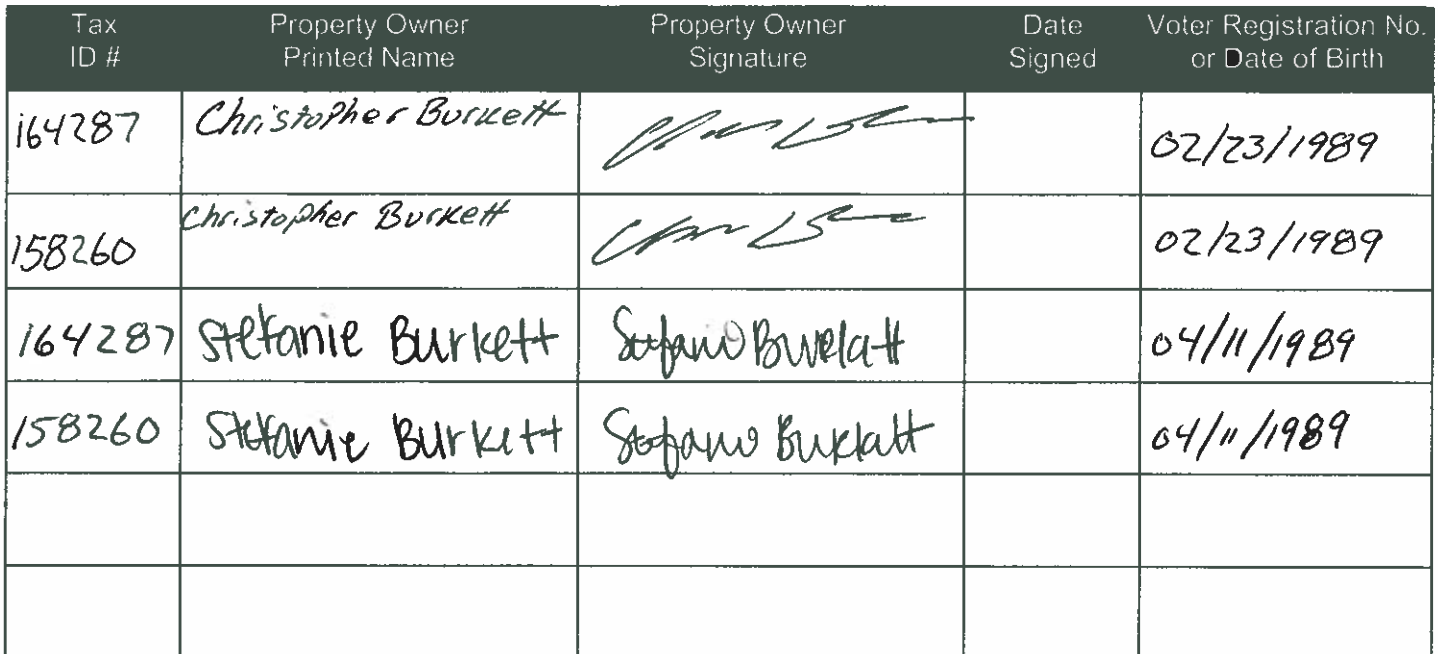 Tax ID # Property Owner Printed Name Property Owner Signature Date Signed Voter Registration No. or Date of Birth
164287 Christopher Burkett 02/23/1989
158260 Christopher Burkett 02/23/1989
164287 Stefanie Burkett Stefanie Burkett 04/11/1989
158260 Stefanie Burkett Stefanie Burkett 04/11/1989